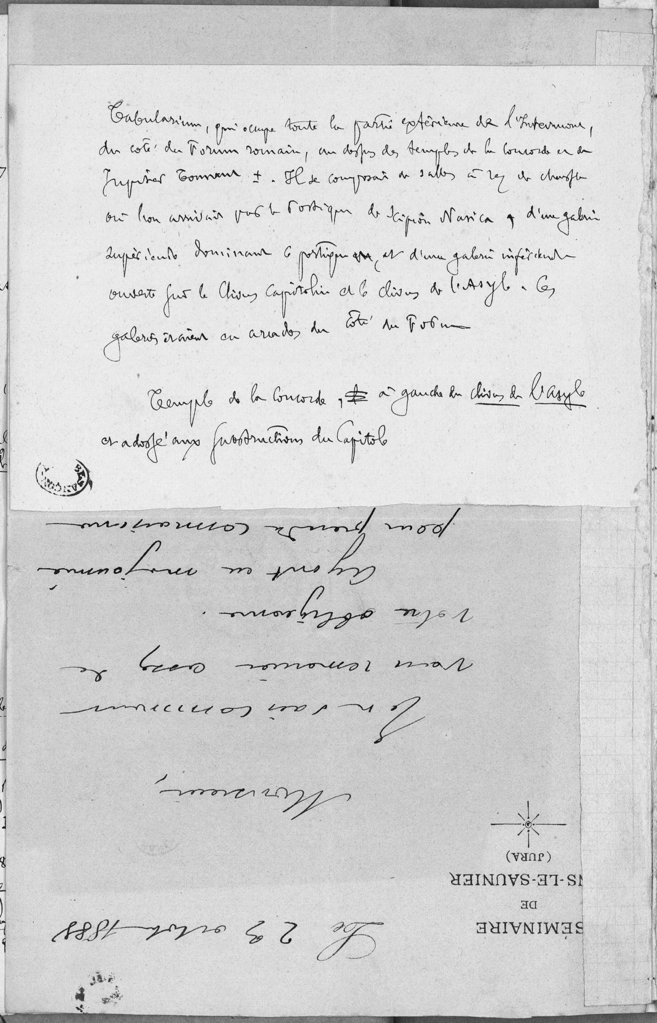 Tabularium, qui occupe toute la partie extérieure de l'Intermont,
du coté du Forum romain, au dessus des temples de la concorde et de
Jupiter Tonnant ±. Il se composait de salles à rez de chaussée
où l'on arrivait par le Portique de Scipion Nasica, d'une galerie
supérieure dominant ce portique, et d'une galerie inférieure
ouverte sur le Clivus Capitolin et le clivus de l'Asyle. Ces
galeries étaient en arcades du côté du Forum
Temple de la Concorde, à gauche du clivus de l'Asyle
et adossé aux substructions du Capitole
BESANÇON
pour prendre
Ayant eu ma journée
votre obligeance.
vous remercier assez de
Je ne sais comment
Monsieur,
(JURA)
NS-LE-SAUNIER
DE
SÉMINAIRE
Le 23 octobre 1888